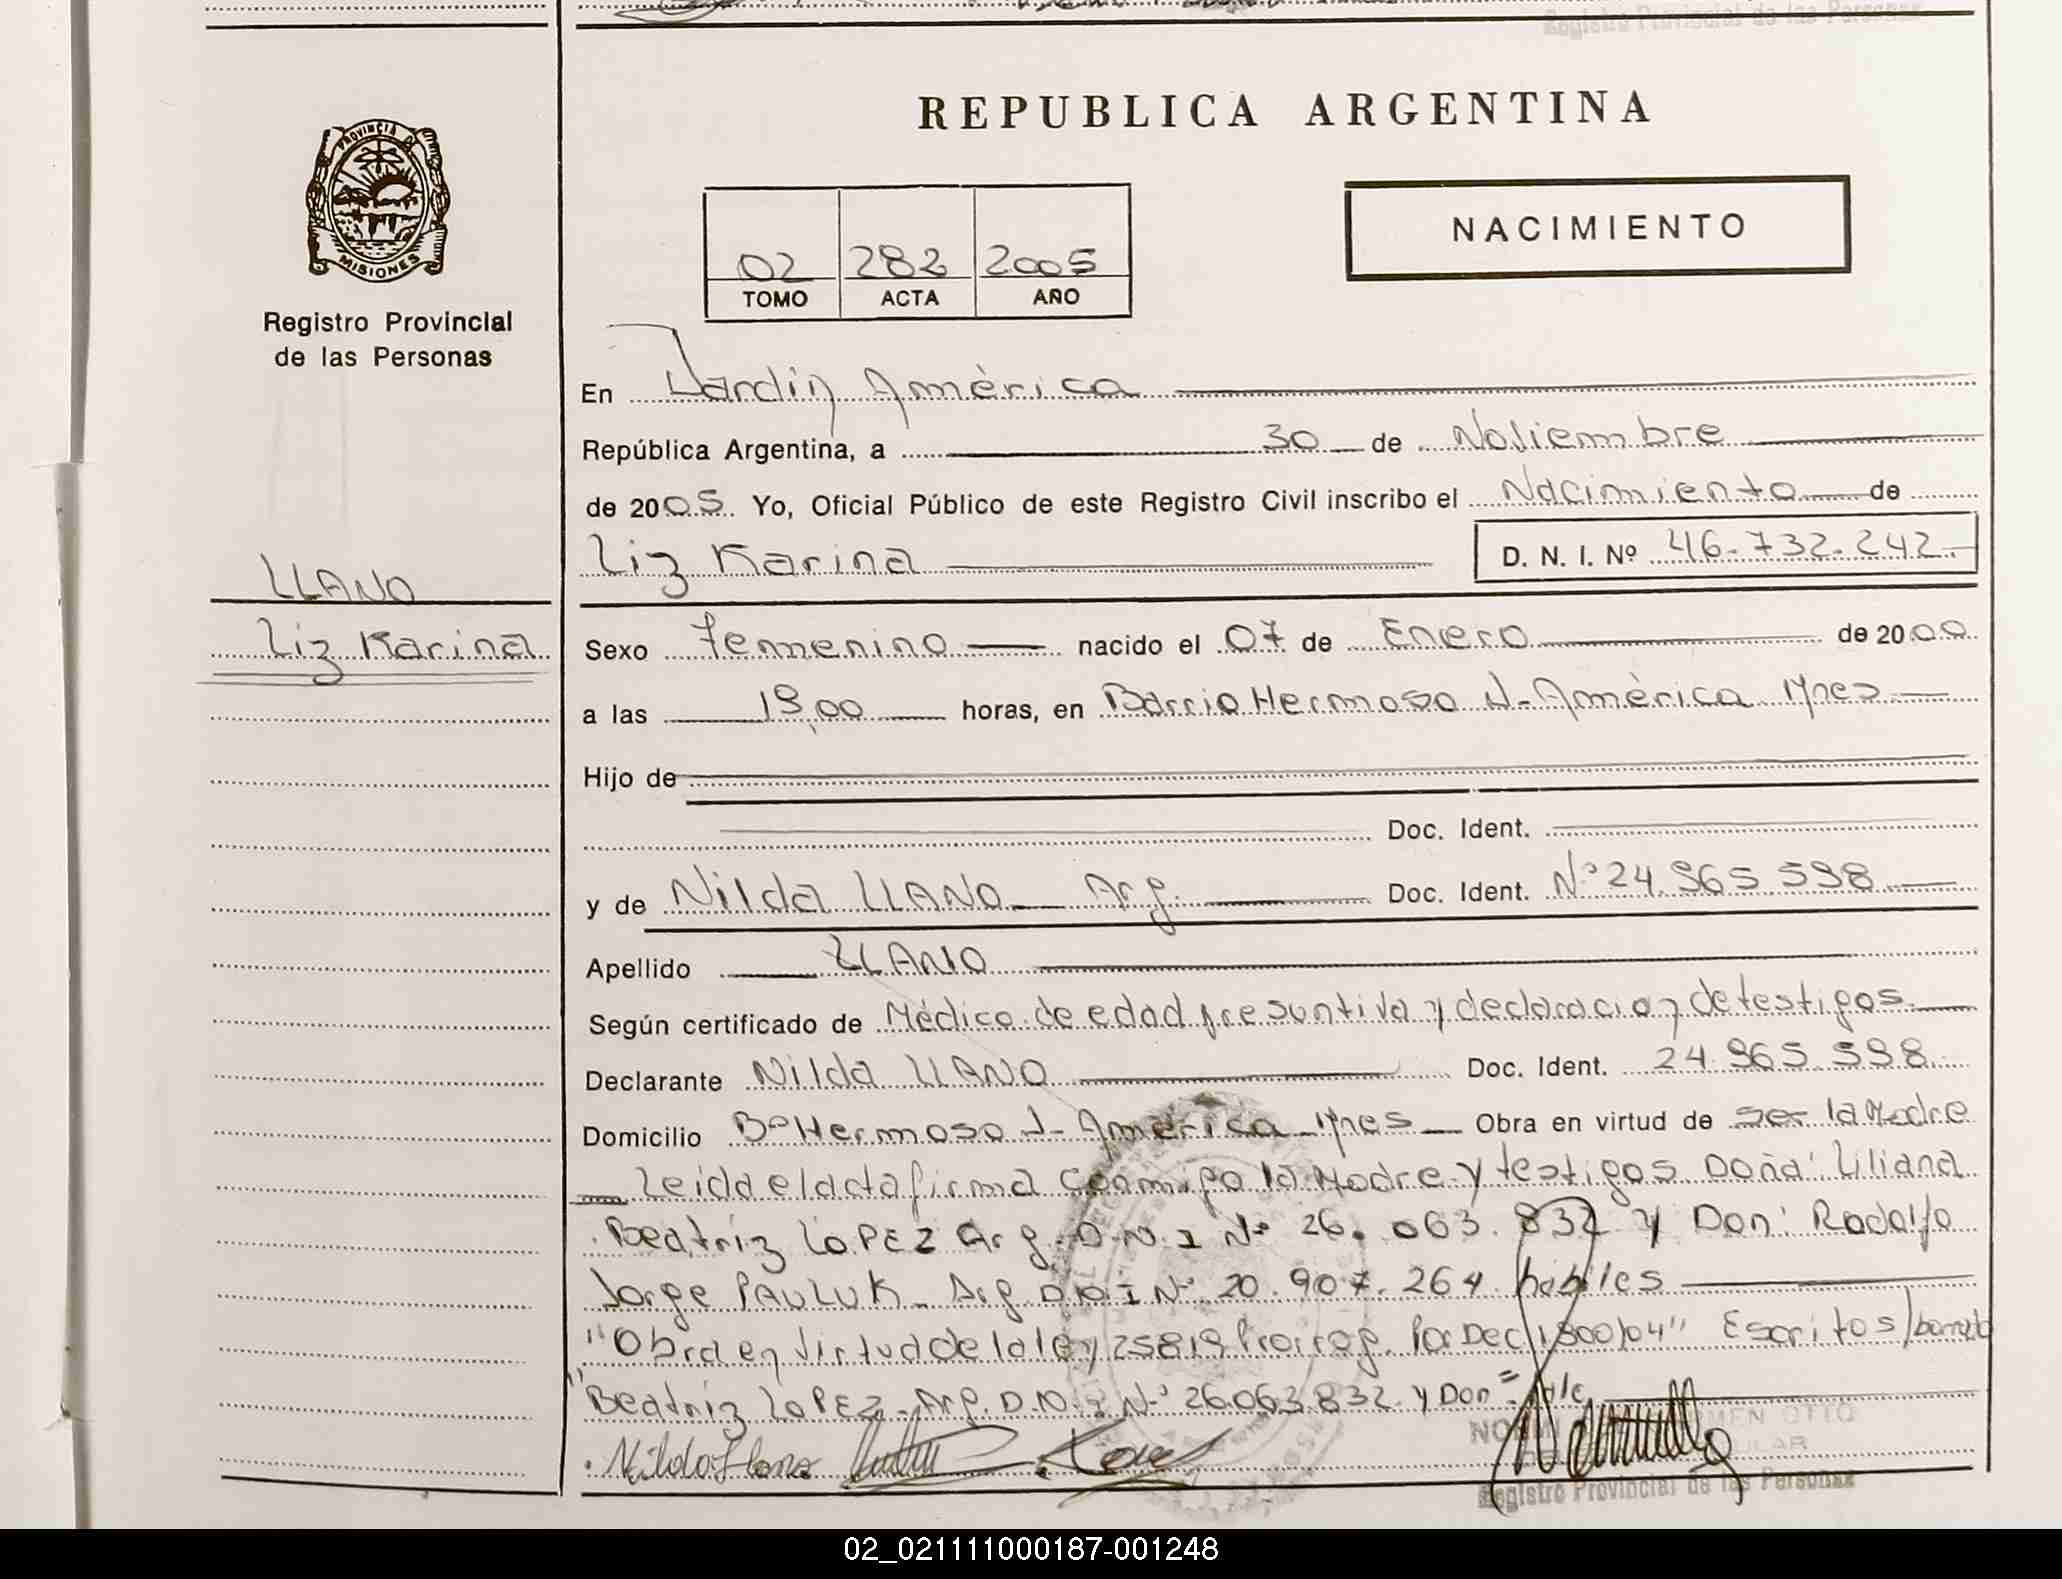 Registro Provincial de las Personas
PROVINCIA DE
MISIONES
Registro Provincial
de las Personas
LLANO
Liz Karina
REPUBLICA ARGENTINA
02 282 2005
TOMO ACTA AÑO
NACIMIENTO
En Jardin América
República Argentina, a 30 de Noviembre
de 2005. Yo, Oficial Público de este Registro Civil inscribo el Nacimiento de
Liz Karina D. N. I. Nº 46.732.242.
Sexo Femenino nacido el 07 de Enero de 2000
a las 19,00 horas, en Barrio Hermoso J. América Mnes
Hijo de
Doc. Ident.
y de Nilda LLANO Arg. Doc. Ident. Nº 24.965.598
Apellido LLANO
Según certificado de Médico de edad presuntiva y declaracion de testigos.
Declarante Nilda LLANO Doc. Ident. 24.965.598.
Domicilio Bº Hermoso J. América Mnes Obra en virtud de ser la Madre
Leida el acta firma conmigo la Madre y testigos Doña: Liliana
Beatriz LOPEZ Arg. D.N.I Nº 26.063.832 y Don: Rodolfo
Jorge PAULUK Arg DNI Nº 20.907.264. hábiles
"Obra en virtud de la ley 25819 Prorrog. Por Dec 1800/04" Escritos/borrado
"Beatriz LOPEZ Arg. D.N.I Nº 26.063.832. y Don = Vle
Nilda Llano
Registro Provincial de las Personas
02_021111000187-001248